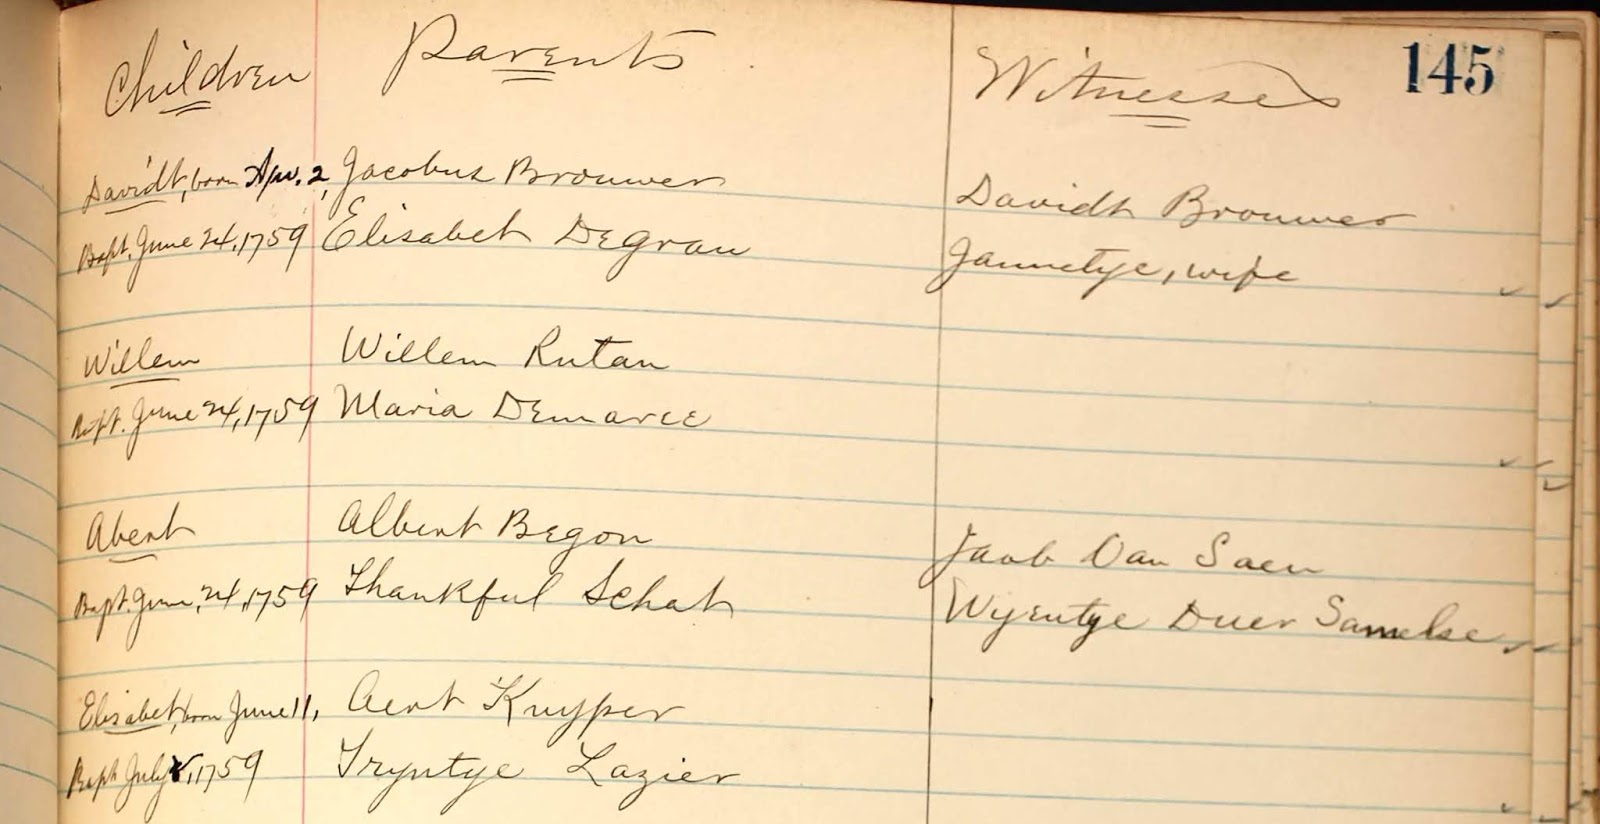 Children Parents Witnesses 145
Davidt, born Apr. 2, Jacobus Brouwer Davidt Brouwer
Bapt. June 24, 1759 Elisabet Degrau Jannetye, wife
Willem Willem Rutan
Bapt. June 24, 1759 Maria Demaree
Abert Albert Begon Jacob Van Saen
Bapt. June, 24, 1759 Thankful Schat Wyentye Duer Samelse
Elisabet, born June 11, Aert Kuyper
Bapt July 1759 Tryntye Lazier